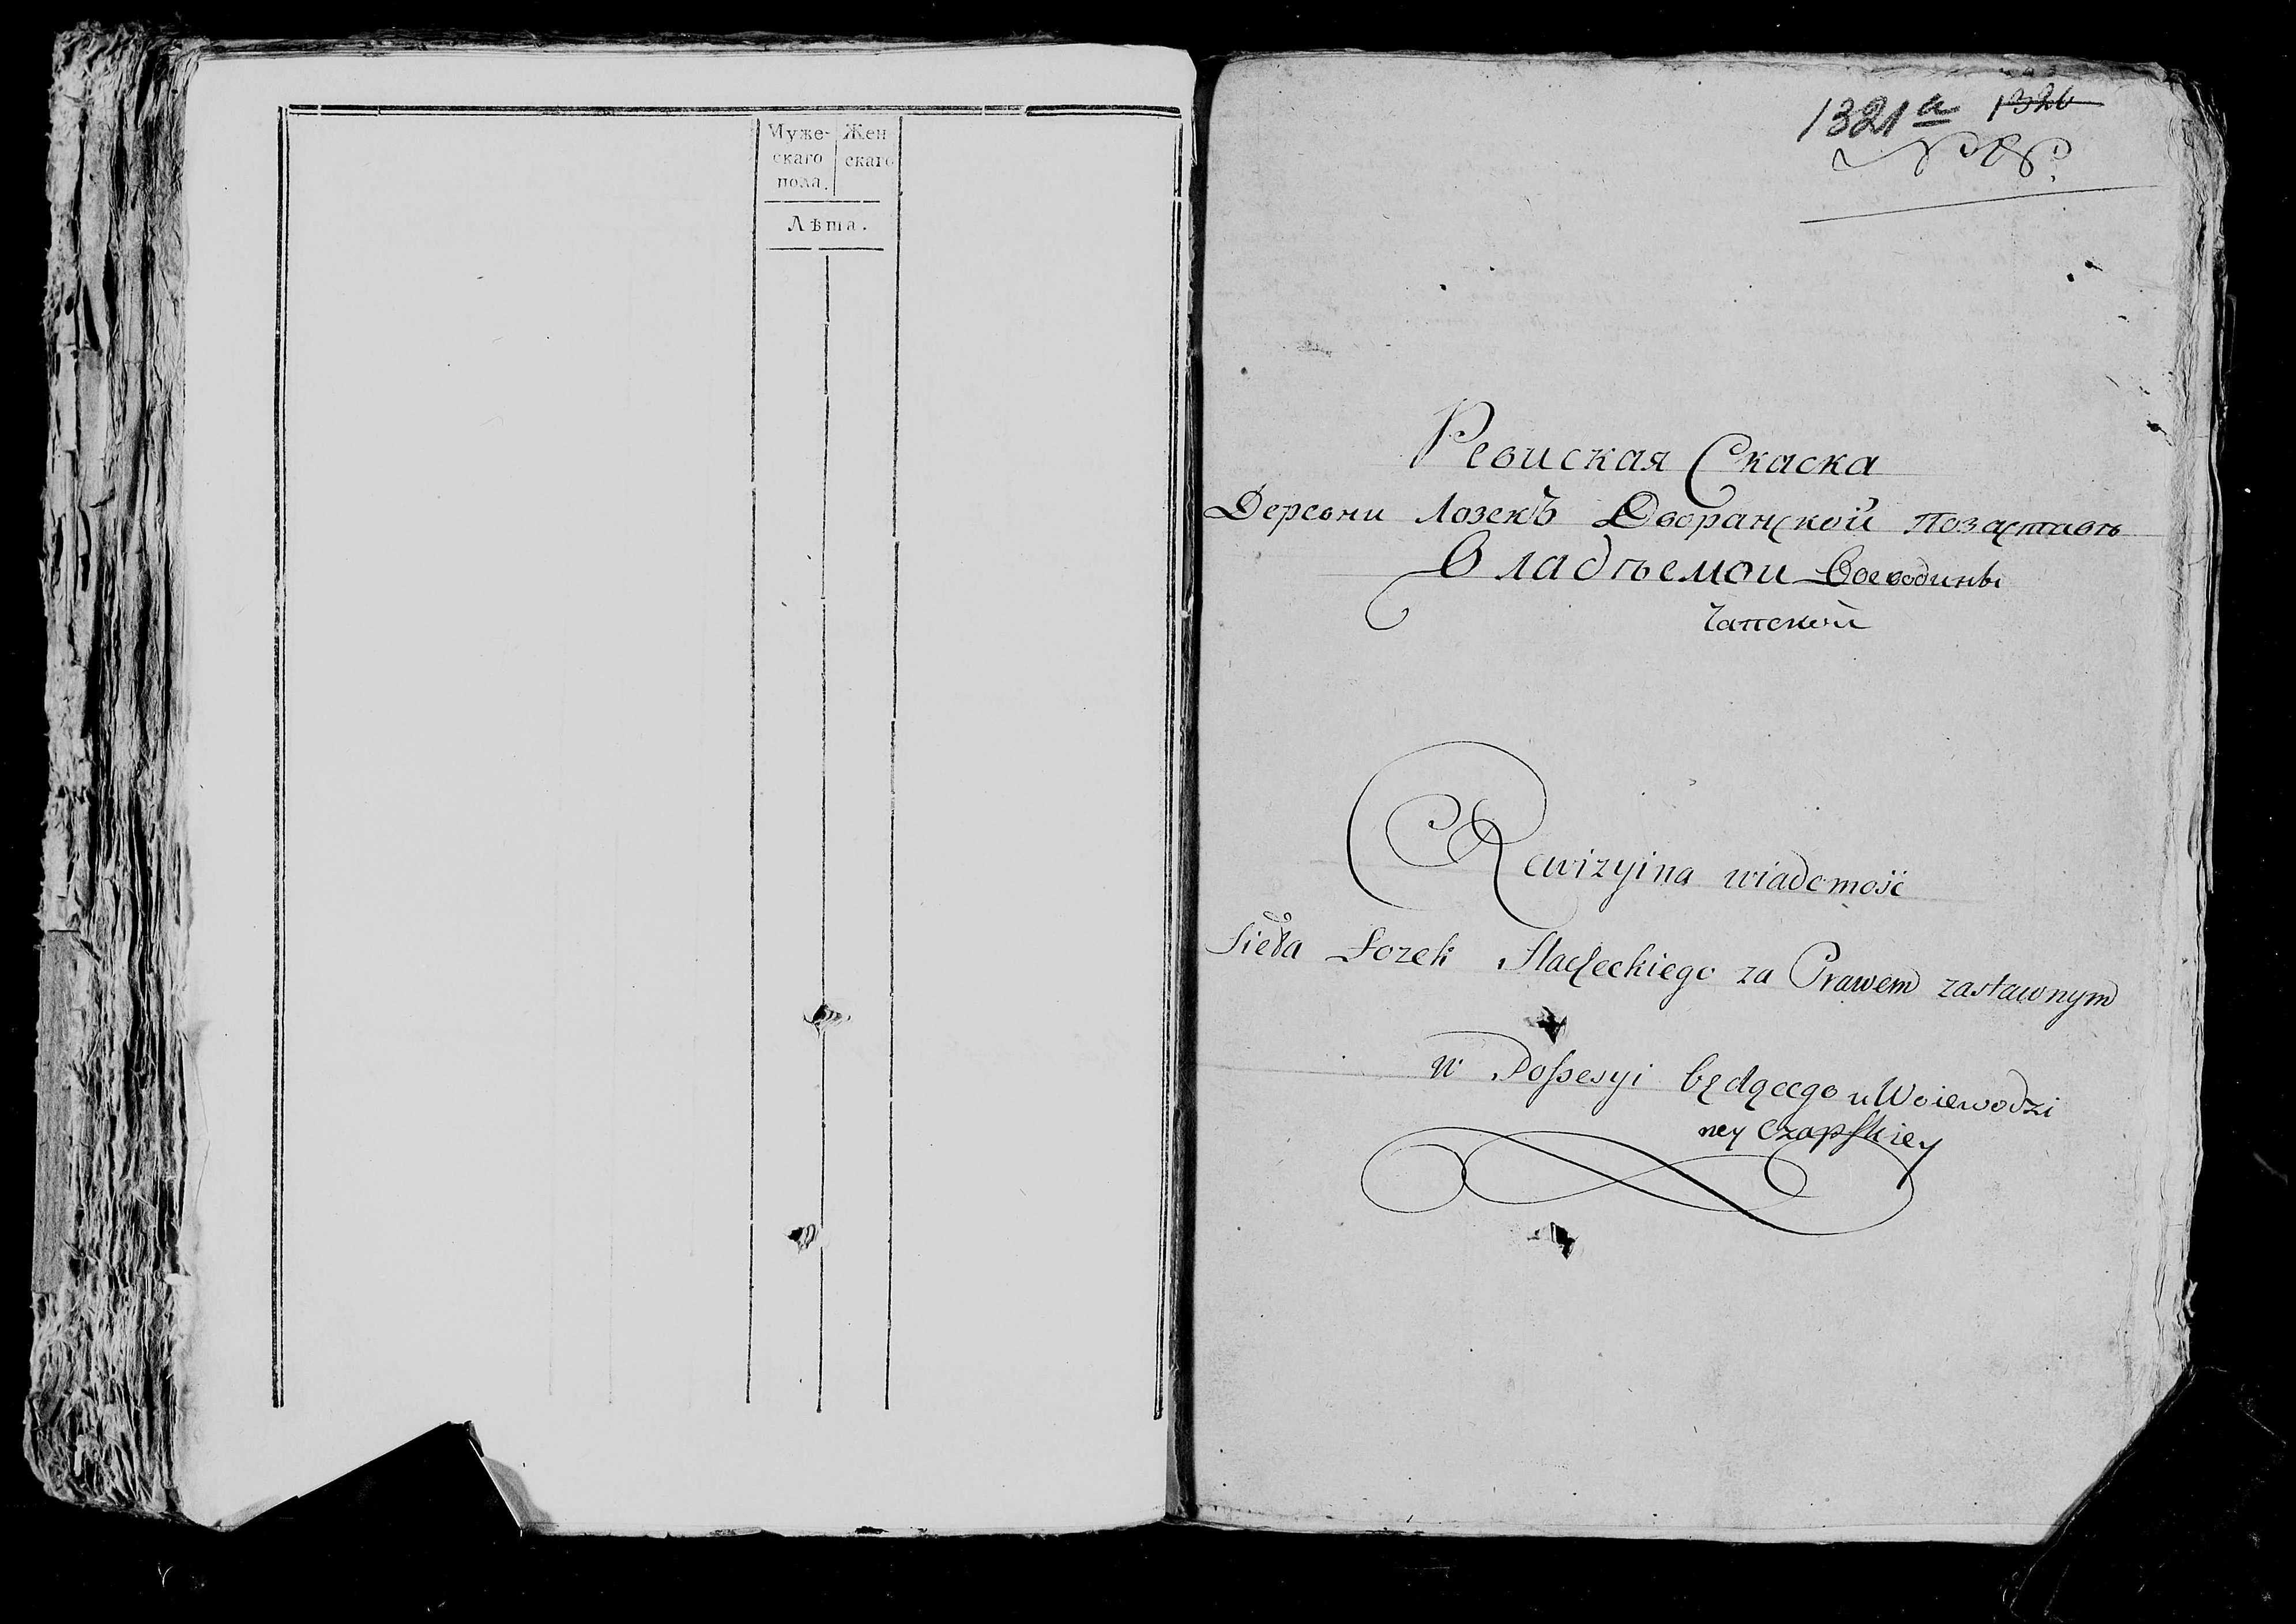 Муже- Жен
скаго скаго
пола.
Лѣта.
1321 а 1326
Ревиская Скаска
Деревни Лозекъ Дворанской позаставѣ
Владѣемои Воеводины
Чапской
Rewizyina wiadomość
Sieła Łozek Slacheckiego za Prawem zastawnym
w Possesyi będącego u Woiewodzi
ney Czapskiey